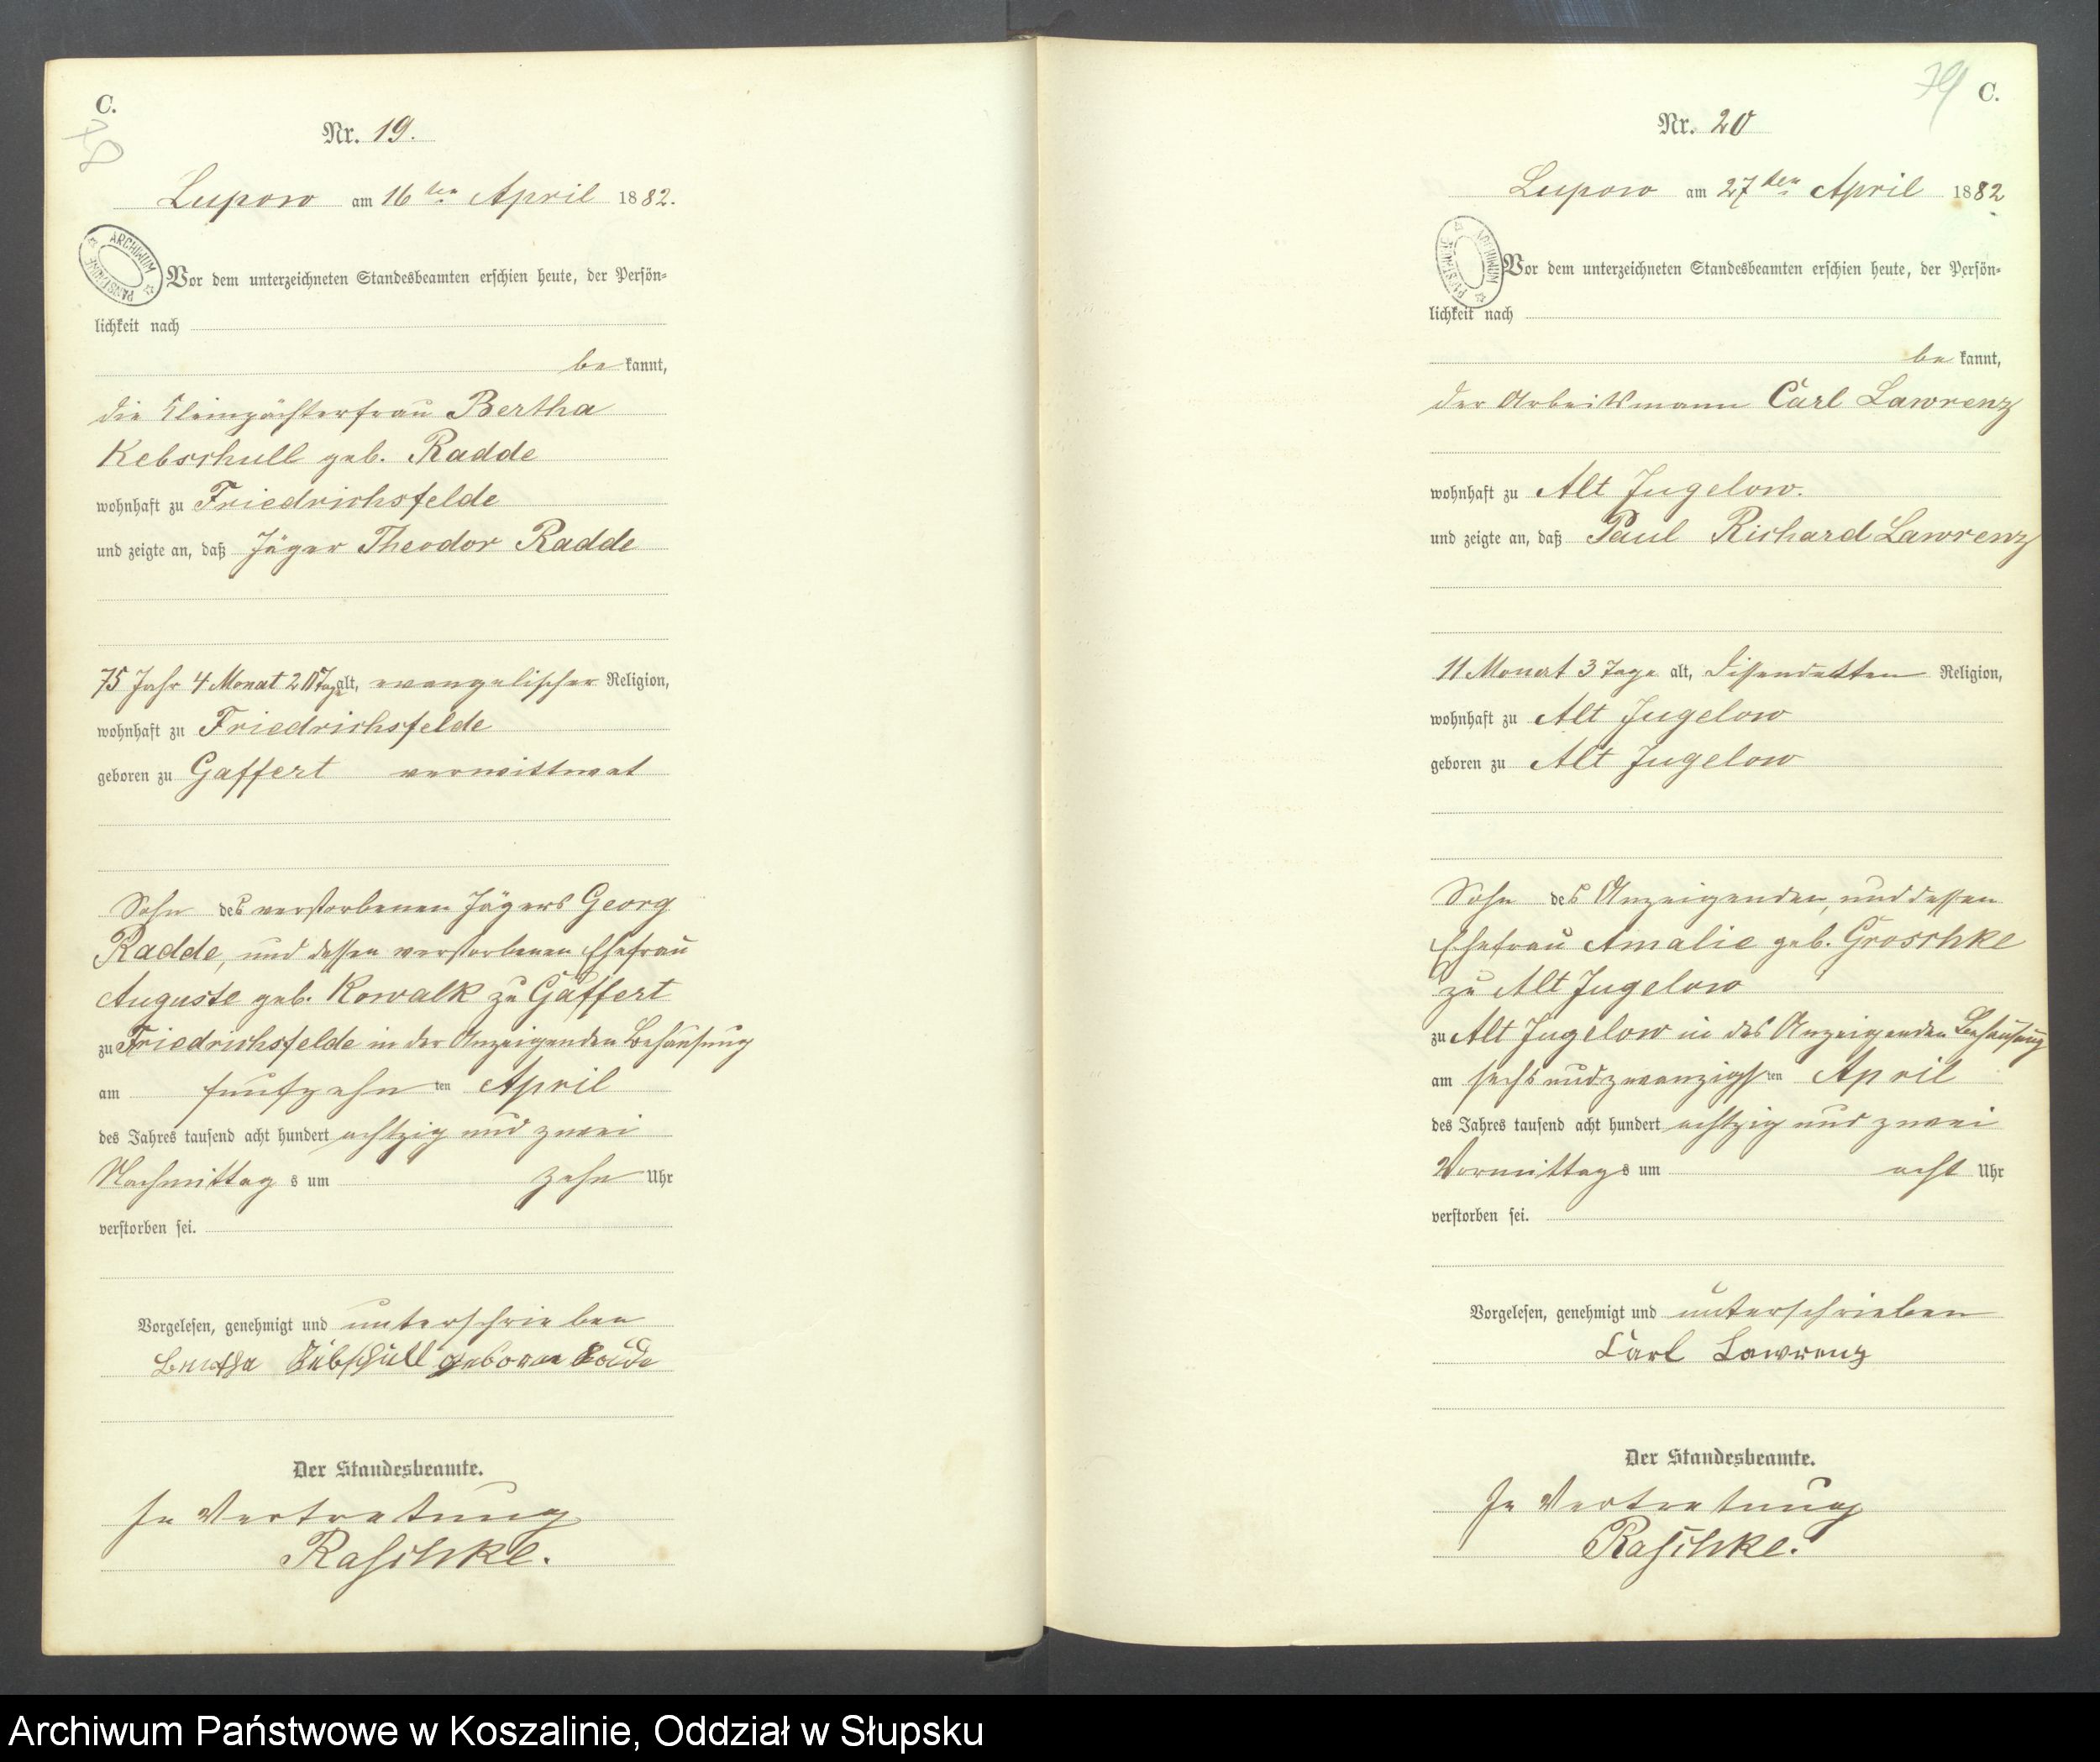 C.
78
Nr. 19.
Lupow am 16ten April 1882.
ARCHIWUM PAŃSTWOWE
Vor dem unterzeichneten Standesbeamten erschien heute, der Persön-
lichkeit nach
be kannt,
die Kleinpächterfrau Bertha
Kebschull geb. Radde
wohnhaft zu Friedrichsfelde
und zeigte an, daß Jäger Theodor Radde
75 Jahr 4 Monat 20 Tage alt, evangelischer Religion,
wohnhaft zu Friedrichsfelde
geboren zu Gaffert verwittwet
Sohn des verstorbenen Jägers Georg
Radde, und dessen verstorbenen Ehefrau
Auguste geb. Kowalk zu Gaffert
zu Friedrichsfelde in der Anzeigenden Behausung
am fünfzehn ten April
des Jahres tausend acht hundert achtzig und zwei
Nachmittag s um zehn Uhr
verstorben sei.
Vorgelesen, genehmigt und unterschrieben
Bertha Kebschull geborne Radde
Der Standesbeamte.
In Vertretung
Raschke.
79 C.
Nr. 20
Lupow am 27ten April 1882
ARCHIWUM PAŃSTWOWE
Vor dem unterzeichneten Standesbeamten erschien heute, der Persön-
lichkeit nach
be kannt,
der Arbeitsmann Carl Lawrenz
wohnhaft zu Alt Jugelow.
und zeigte an, daß Paul Richard Lawrenz
11 Monat 3 Tage alt, Disendetten Religion,
wohnhaft zu Alt Jugelow
geboren zu Alt Jugelow
Sohn des Anzeigenden, und dessen
Ehefrau Amalie geb. Groschke
zu Alt Jugelow
zu Alt Jugelow in des Anzeigenden Behausung
am sechs und zwanzigsten April
des Jahres tausend acht hundert achtzig und zwei
Vormittag s um acht Uhr
verstorben sei.
Vorgelesen, genehmigt und unterschrieben
Carl Lawrenz
Der Standesbeamte.
In Vertretung
Raschke.
Archiwum Państwowe w Koszalinie, Oddział w Słupsku